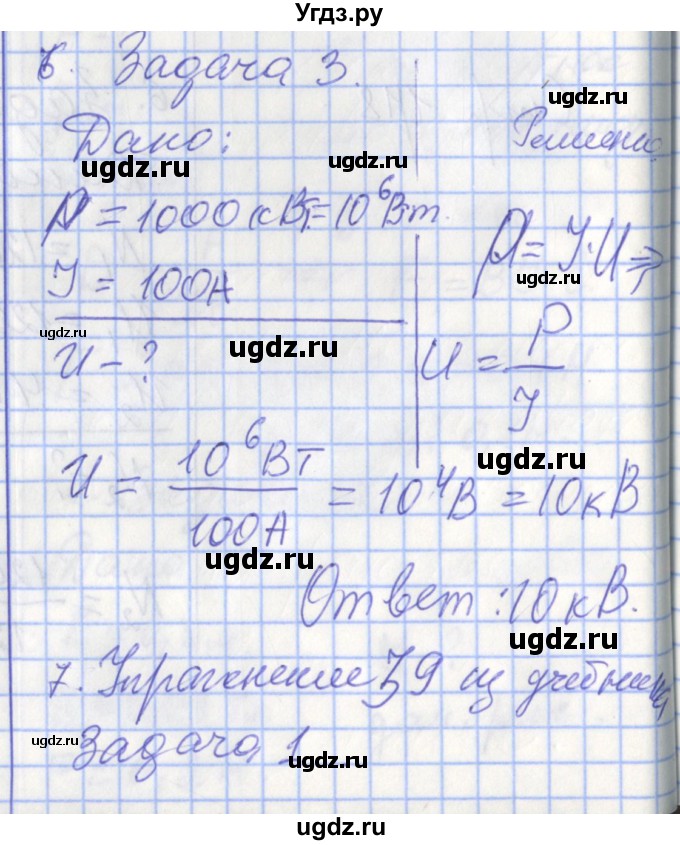 Угдз.ру
6. Задача 3.
ugdz.ru
Дано:
Решение
ugdz.ru
ugdz.ru
P = 1000 кВт = 10⁶ Вт.
P = I·U ⇒
ugdz.ru
I = 100А
ugdz.ru
ugdz.ru
U - ?
U = P/I
U = 10⁶Вт/100А = 10⁴В = 10кВ
ugdz.ru
ugdz.ru
Ответ: 10 кВ.
ugdz.ru
7. Упражнение 39 из учебника
ugdz.ru
ugdz.ru
Задача 1
ugdz.ru
ugdz.ru
ugdz.ru